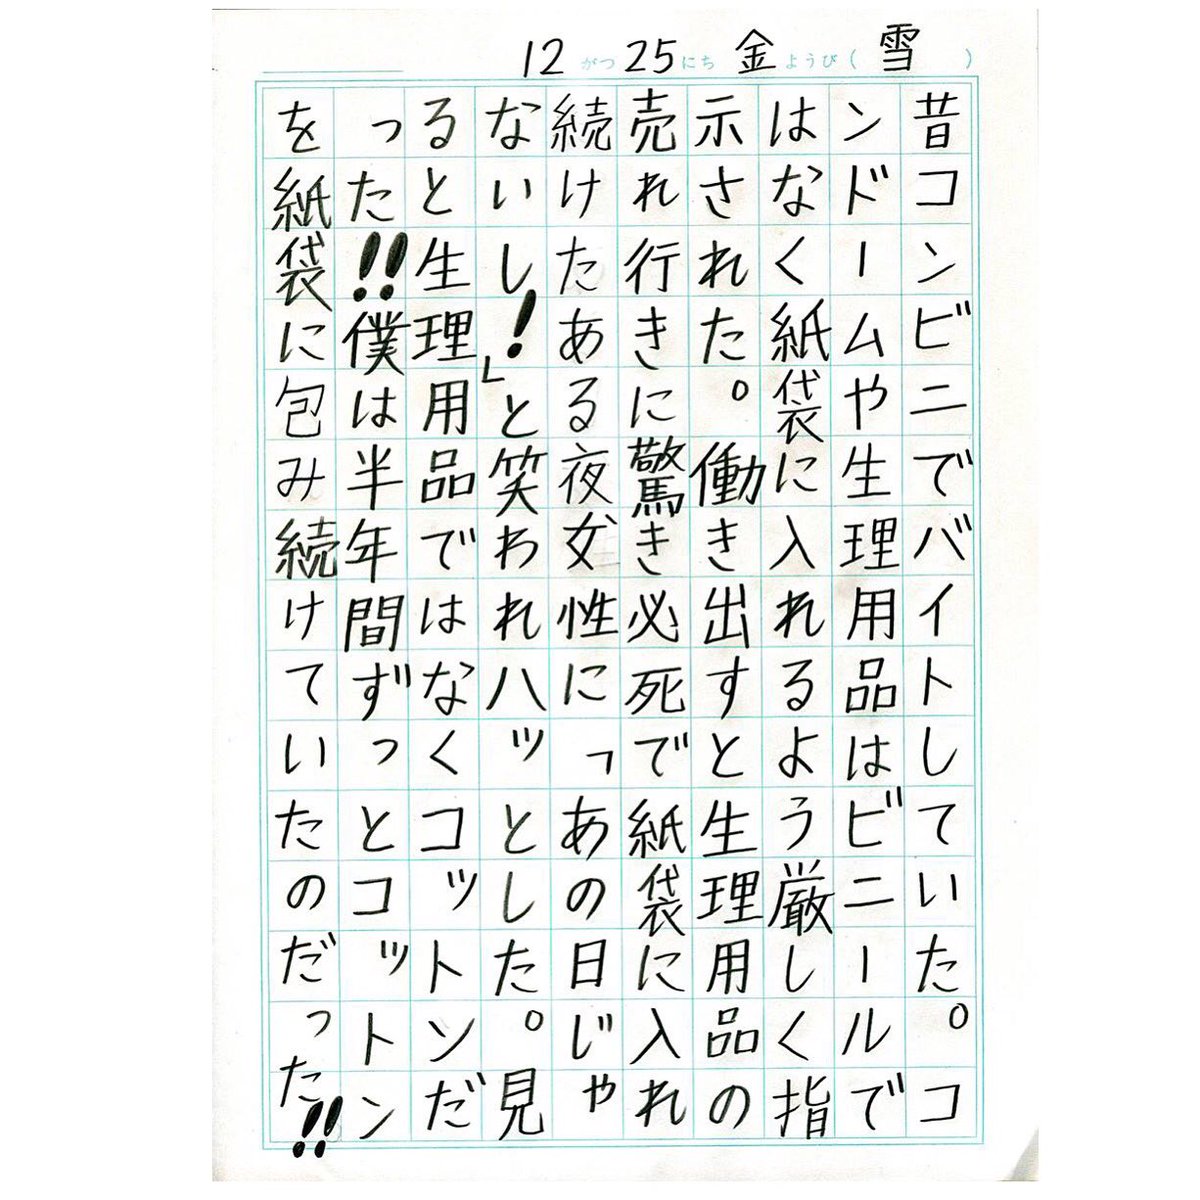 12がつ25にち金ようび(雪)
昔コンビニでバイトしていた。コ
ンドームや生理用品はビニールで
はなく紙袋に入れるよう厳しく指
示された。働き出すと生理用品の
売れ行きに驚き必死で紙袋に入れ
続けたある夜女性に「あの日じゃ
ないし!」と笑われハッとした。見
ると生理用品ではなくコットンだ
った!!僕は半年間ずっとコットン
を紙袋に包み続けていたのだった!!